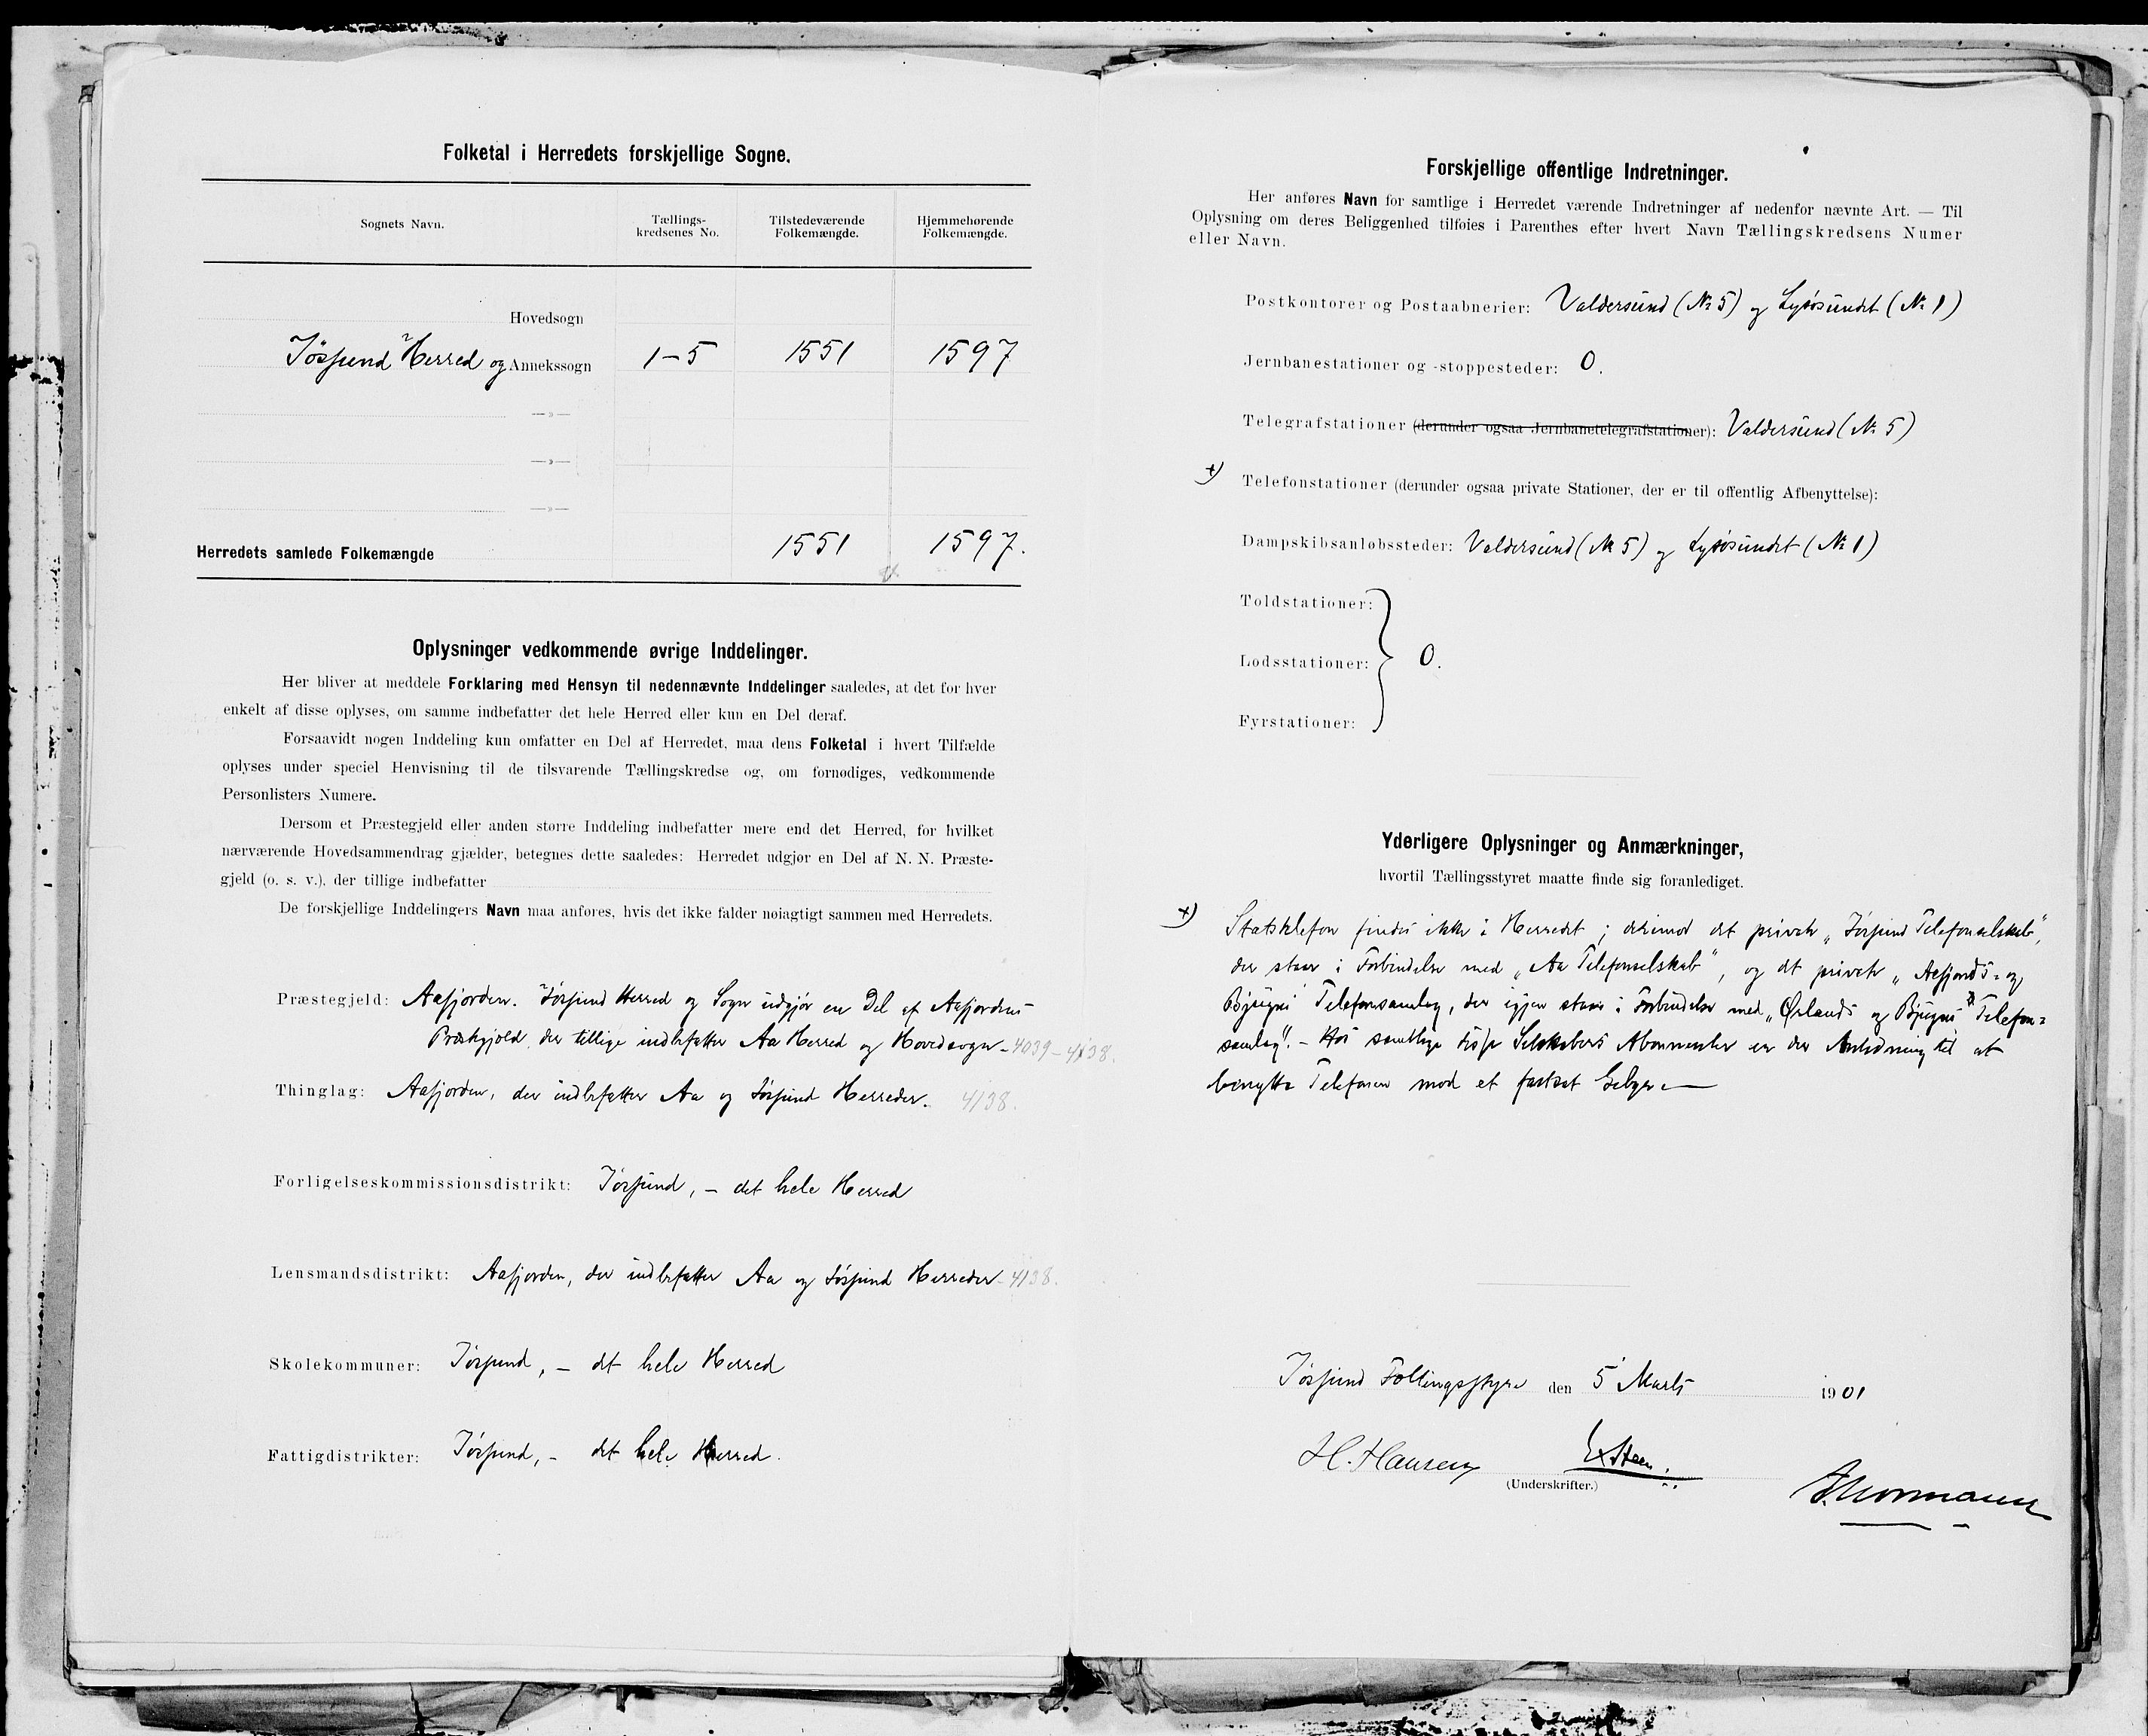 Folketal i Herredets forskjellige Sogne.
Sognets Navn.
Tællings-
kredsenes No.
Tilstedeværende
Folkemængde.
Hjemmehørende
Folkemængde.
Hovedsogn
Jøssund Herred og Annekssogn 1-5 1551 1597
—»—
—»—
—»—
Herredets samlede Folkemængde 1551 1597.
Oplysninger vedkommende øvrige Inddelinger.
Her bliver at meddele Forklaring med Hensyn til nedennævnte Inddelinger saaledes, at det for hver
enkelt af disse oplyses, om samme indbefatter det hele Herred eller kun en Del deraf.
Forsaavidt nogen Inddeling kun omfatter en Del af Herredet, maa dens Folketal i hvert Tilfælde
oplyses under speciel Henvisning til de tilsvarende Tællingskredse og, om fornødiges, vedkommende
Personlisters Numere.
Dersom et Præstegjeld eller anden større Inddeling indbefatter mere end det Herred, for hvilket
nærværende Hovedsammendrag gjælder, betegnes dette saaledes: Herredet udgjør en Del af N. N. Præste-
gjeld (o. s. v.), der tillige indbefatter
De forskjellige Inddelingers Navn maa anføres, hvis det ikke falder nøiagtigt sammen med Herredets.
Præstegjeld: Aafjorden. Jøssund Herred og Sogn udgjør en Del af Aafjordens
Præstegjeld, der tillige indbefatter Aa Herred og Hovedsogn - 4039 - 4138.
Thinglag: Aafjorden, der indbefatter Aa og Jøssund Herreder. 4138.
Forligelseskommissionsdistrikt: Jøssund, - det hele Herred
Lensmandsdistrikt: Aafjorden, der indbefatter Aa og Jøssund Herreder - 4138.
Skolekommuner: Jøssund, - det hele Herred
Fattigdistrikter: Jøssund, - det hele Herred.
Forskjellige offentlige Indretninger.
Her anføres Navn for samtlige i Herredet værende Indretninger af nedenfor nævnte Art. — Til
Oplysning om deres Beliggenhed tilføies i Parenthes efter hvert Navn Tællingskredsens Numer
eller Navn.
Postkontorer og Postaabnerier: Valdersund (№ 5) og Lysøsundet (№ 1)
Jernbanestationer og -stoppesteder: 0.
Telegrafstationer (derunder ogsaa Jernbanetelegrafstationer): Valdersund (№ 5)
+) Telefonstationer (derunder ogsaa private Stationer, der er til offentlig Afbenyttelse):
Dampskibsanløbssteder: Valdersund (№ 5) og Lysøsundet (№ 1)
Toldstationer:
Lodsstationer: 0.
Fyrstationer:
Yderligere Oplysninger og Anmærkninger,
hvortil Tællingsstyret maatte finde sig foranlediget.
+) Statstelefon findes ikke i Herredet; derimod det private „Jøssund Telefonselskab",
der staar i Forbindelse med „Aa Telefonselskab", og det private „Aafjords- og
Bjugns Telefonsamlag, der igjen staar i Forbindelse med „Ørlands og Bjugns Telefon=
samlag". - Hos samtlige disse Selskabers Abonnenter er der Anledning til at
benytte Telefonen mod et fastsat Gebyr. —
Jøssund Tællingsstyre den 5 Marts 1901
H. Hansen
(Underskrifter.)